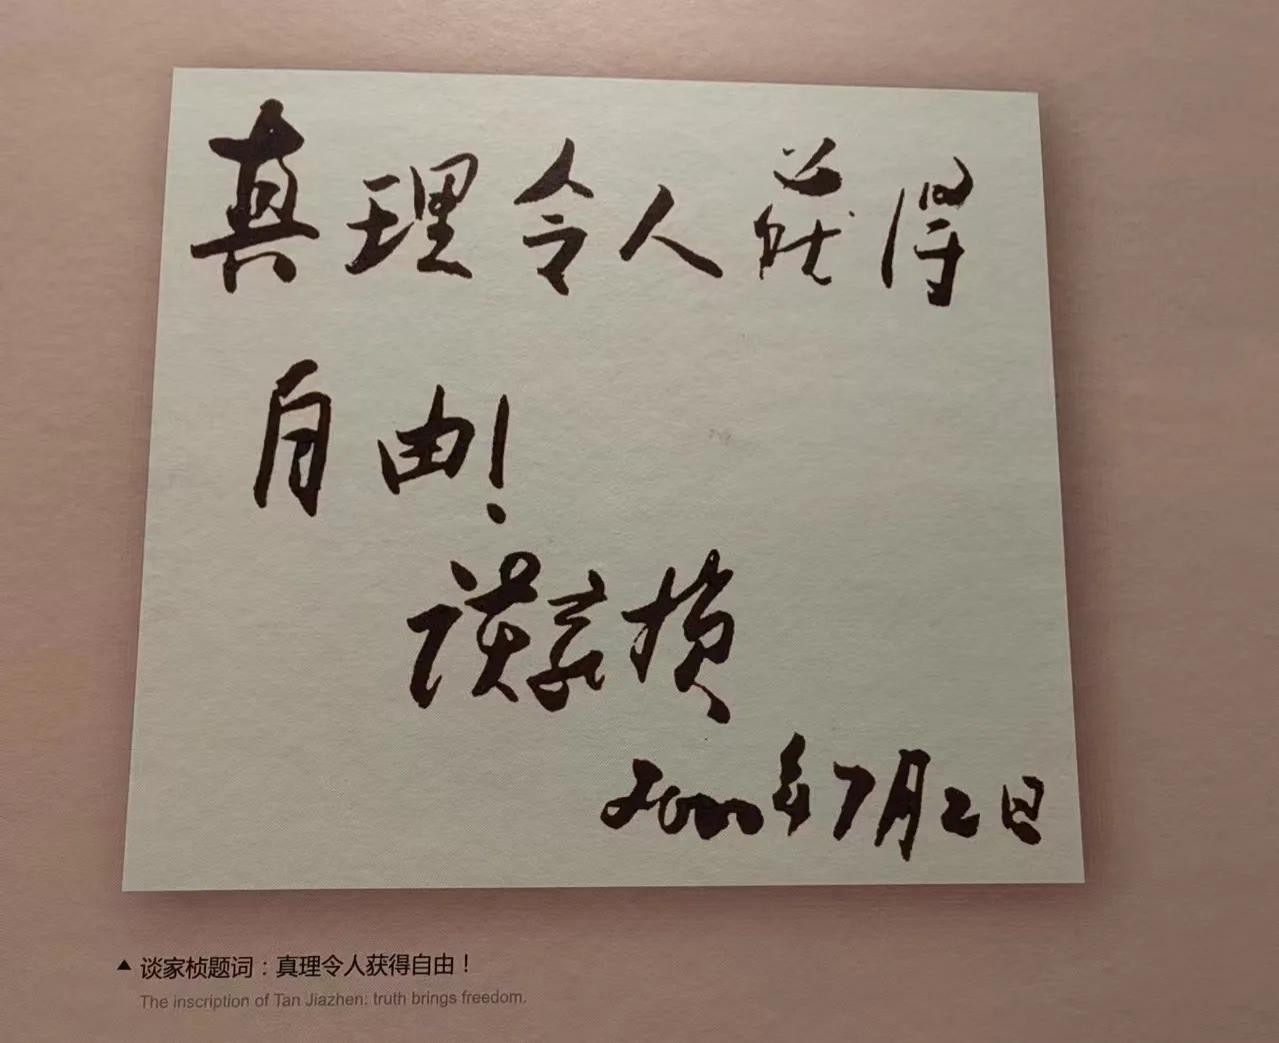 真理令人获得
自由！
谈家桢
2000年7月2日
▲ 谈家桢题词：真理令人获得自由！
The inscription of Tan Jiazhen: truth brings freedom.